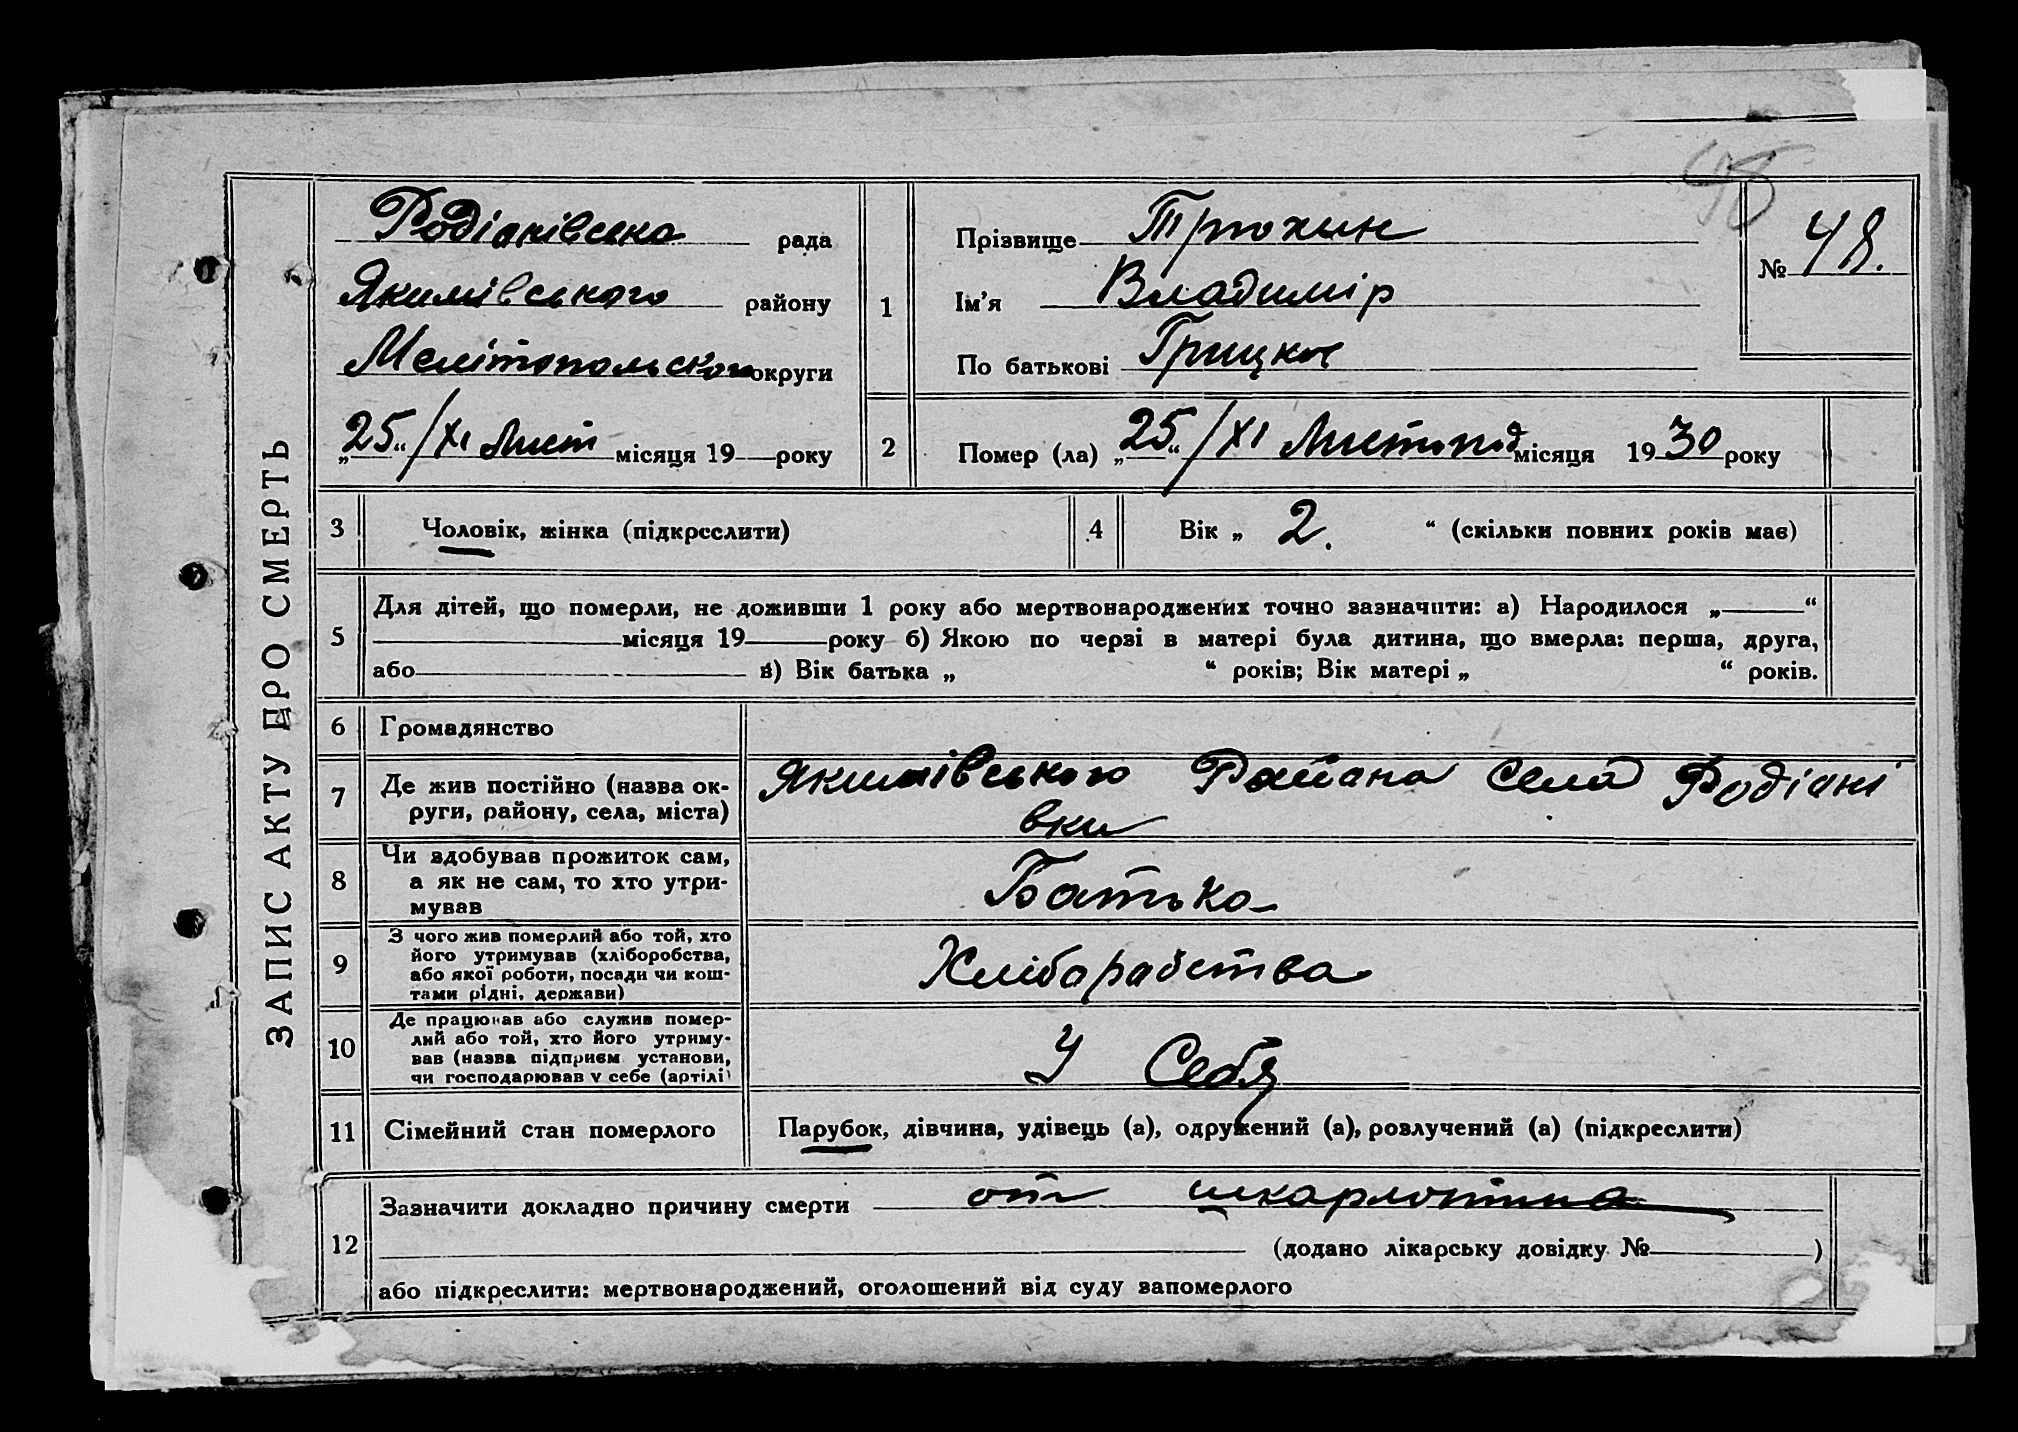 48
ЗАПИС АКТУ ПРО СМЕРТЬ
Родіонівська рада
Якимівського району
Мелітопольського округи
„25“ /XI Лист місяця 19 року
1
Прізвище Трюхин
Ім’я Владимір
По батькові Грицков
№ 48.
2
Помер (ла) „25“ /XI Листопад місяця 1930 року
3 Чоловік, жінка (підкреслити)
4 Вік „ 2. “ (скільки повних років має)
5
Для дітей, що померли, не доживши 1 року або мертвонароджених точно зазначити: а) Народилося „ “
місяця 19 року б) Якою по черзі в матері була дитина, що вмерла: перша, друга,
або в) Вік батька „ “ років; Вік матері „ “ років.
6 Громадянство
7 Де жив постійно (назва ок-
руги, району, села, міста)
Якимівського Района Села Родіані
вки
8 Чи здобував прожиток сам,
а як не сам, то хто утри-
мував
Батько
9 З чого жив померлий або той, хто
його утримував (хліборобства,
або якої роботи, посади чи кош-
тами рідні, держави)
Хліборабства
10 Де працював або служив помер-
лий або той, хто його утриму-
вав (назва підприєм. установи,
чи господарював у себе (артілі)
У Себя
11 Сімейний стан померлого
Парубок, дівчина, удівець (а), одружений (а), розлучений (а) (підкреслити)
12
Зазначити докладно причину смерти от шкарлотина
(додано лікарську довідку № )
або підкреслити: мертвонароджений, оголошений від суду запомерлого